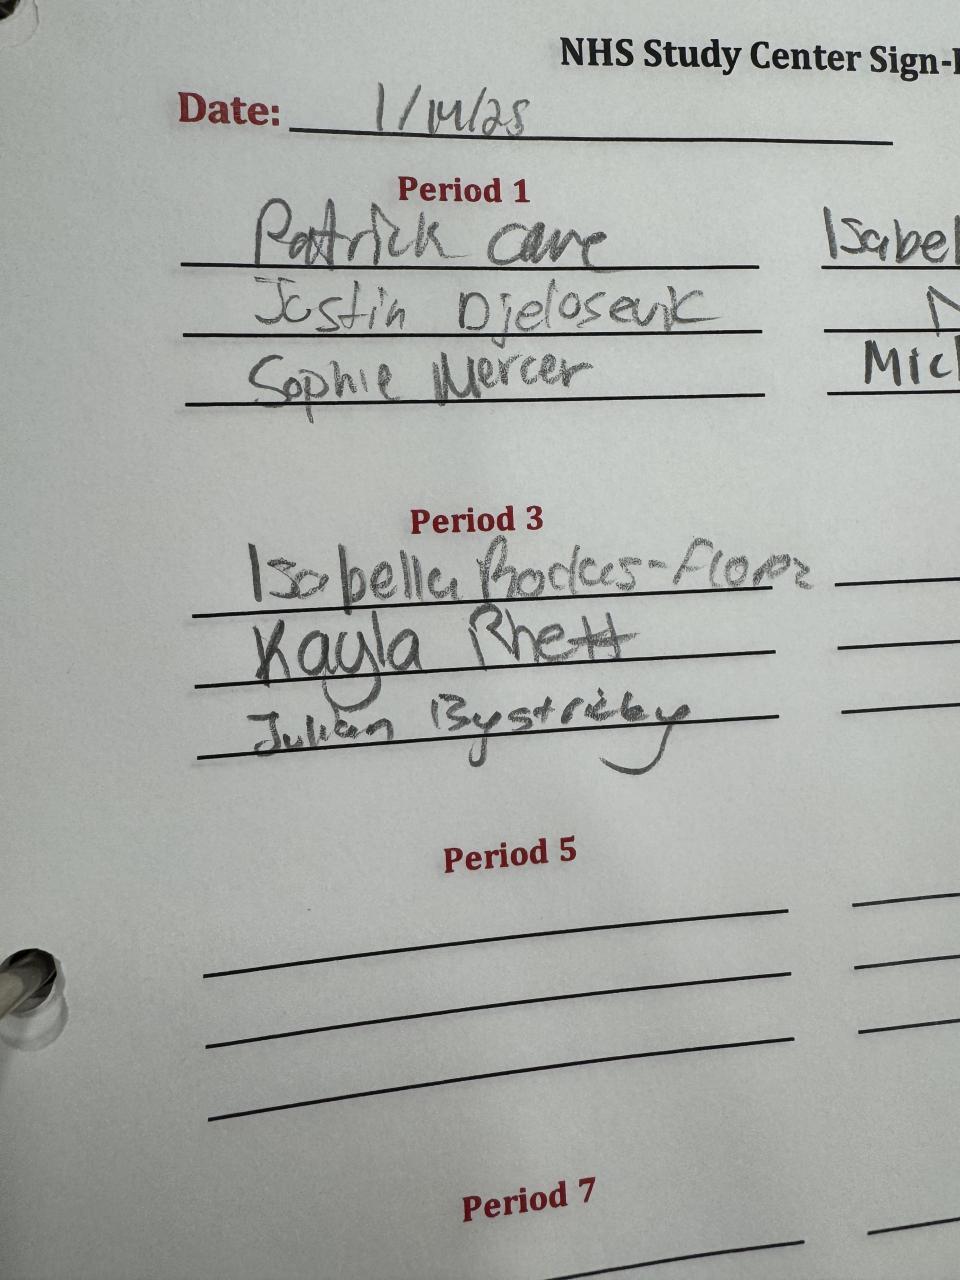 NHS Study Center Sign-I
Date: 1/14/25
Period 1
Patrick Cane Isabel
Justin Djelosevic N
Sophie Mercer Mich
Period 3
Isabella Rodas-Florez
Kayla Rhett
Julian Bystricky
Period 5
Period 7